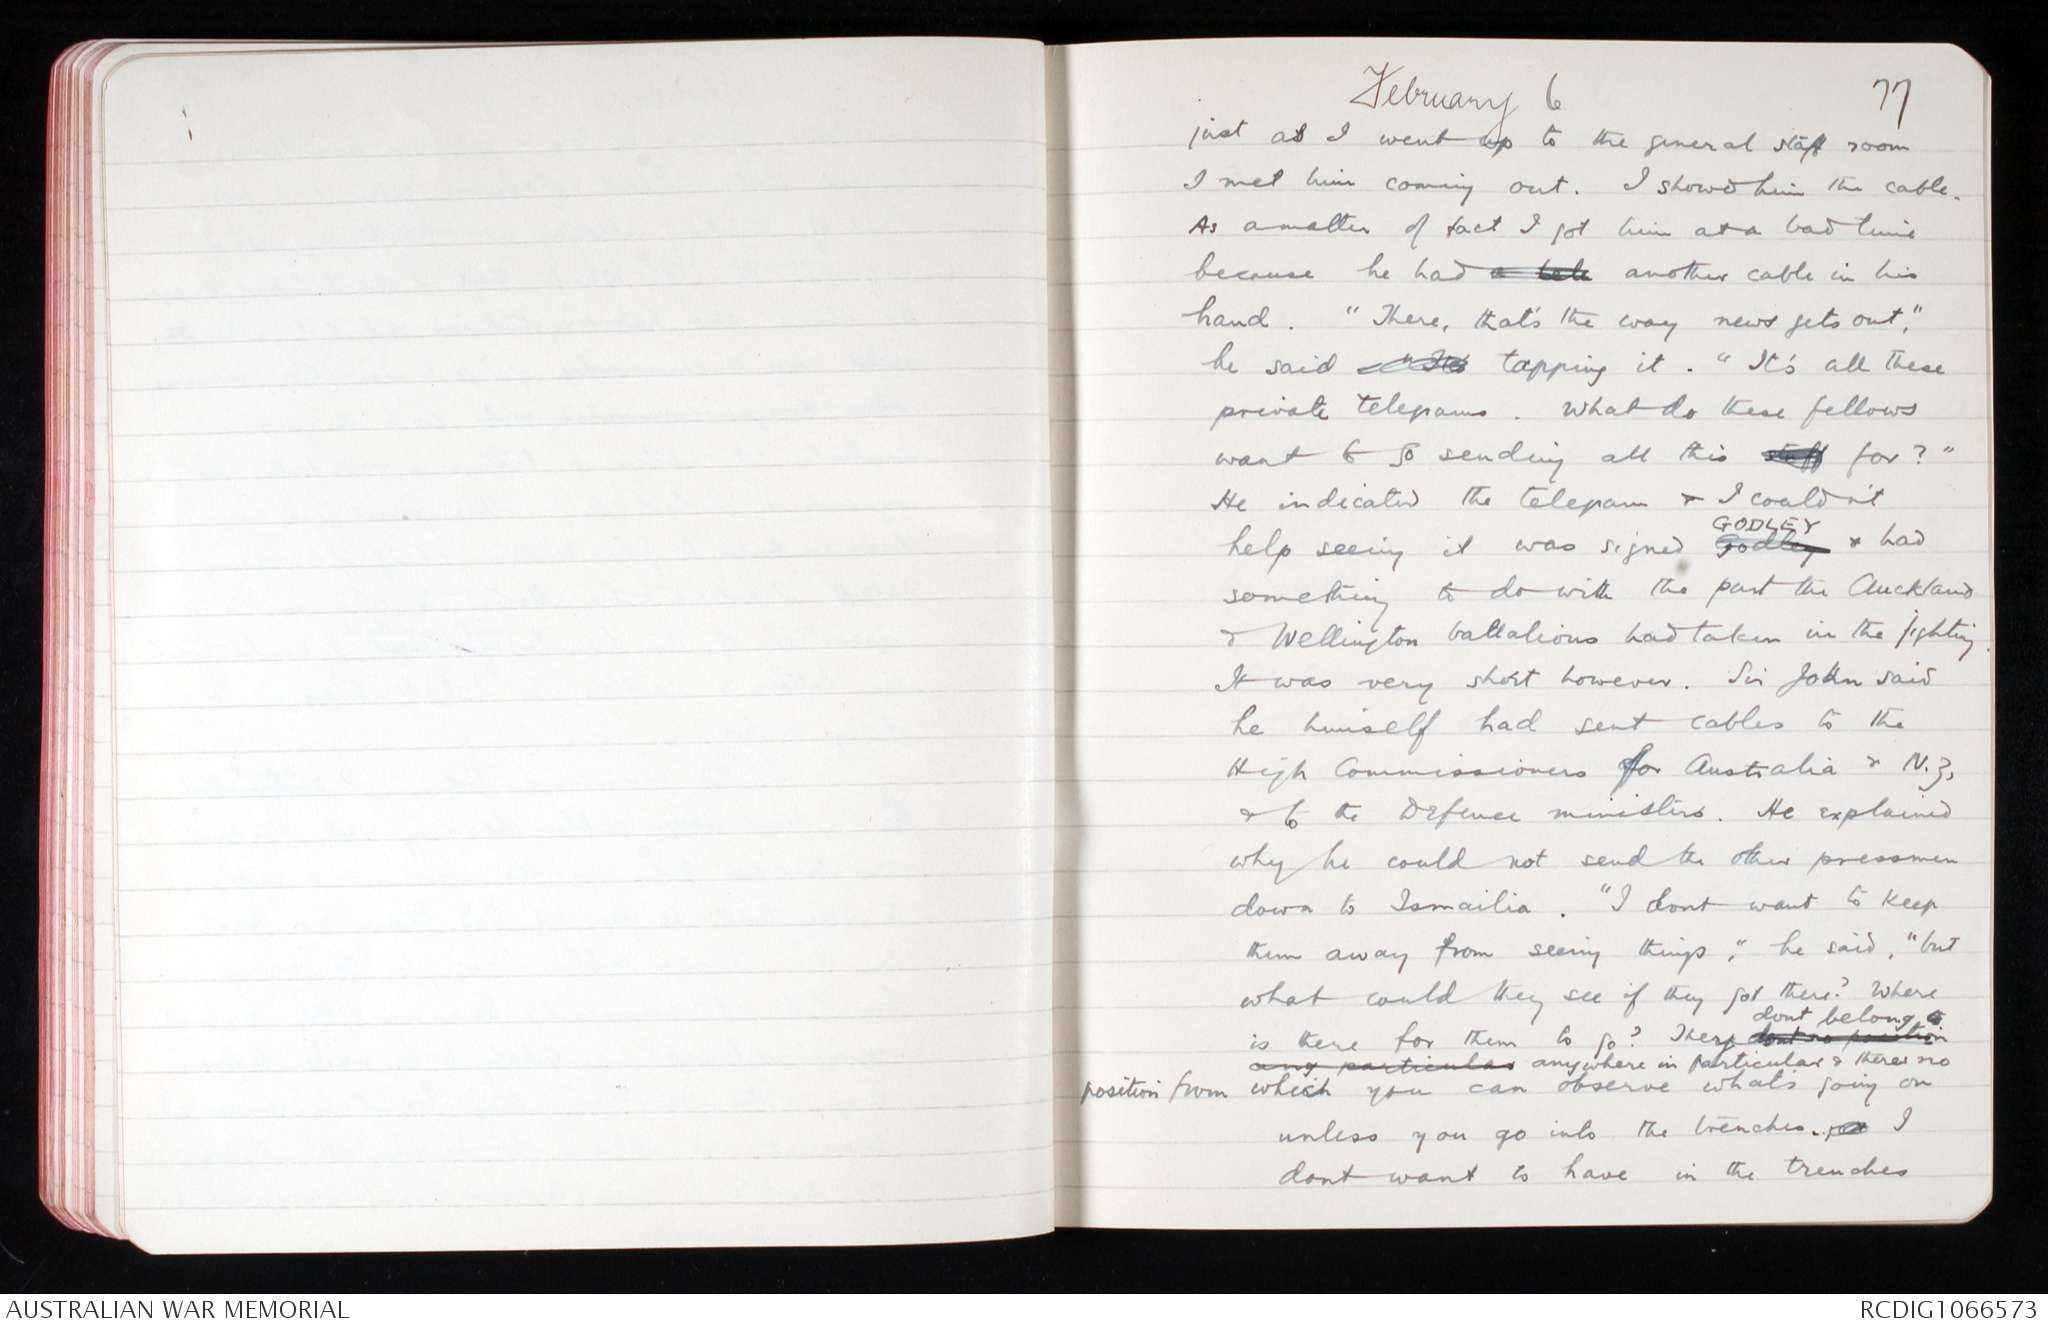 February 6 77
just as I went up to the general staff room
I met him coming out. I showed him the cable.
As a matter of fact I got him at a bad time
because he had a tele another cable in his
hand. "There, that's the way news gets out,"
he said "It's tapping it. "It's all these
private telegrams. What do these fellows
want to go sending all this stuff for?"
He indicated the telegram & I couldn't
GODLEY
help seeing it was signed Godley & had
something to do with the part the Auckland
& Wellington battalions had taken in the fighting.
It was very short however. Sir John said
he himself had sent cables to the
High Commissioners for Australia & N.Z,
& to the Defence ministers. He explained
why he could not send the other pressmen
down to Ismailia. "I dont want to keep
them away from seeing things," he said, "but
what could they see if they got there? Where
dont belong to
is there for them to go? They dont no position
any particular anywhere in particular & theres no
position from which you can observe whats going on
unless you go into the trenches. I
dont want to have in the trenches
AUSTRALIAN WAR MEMORIAL
RCDIG1066573